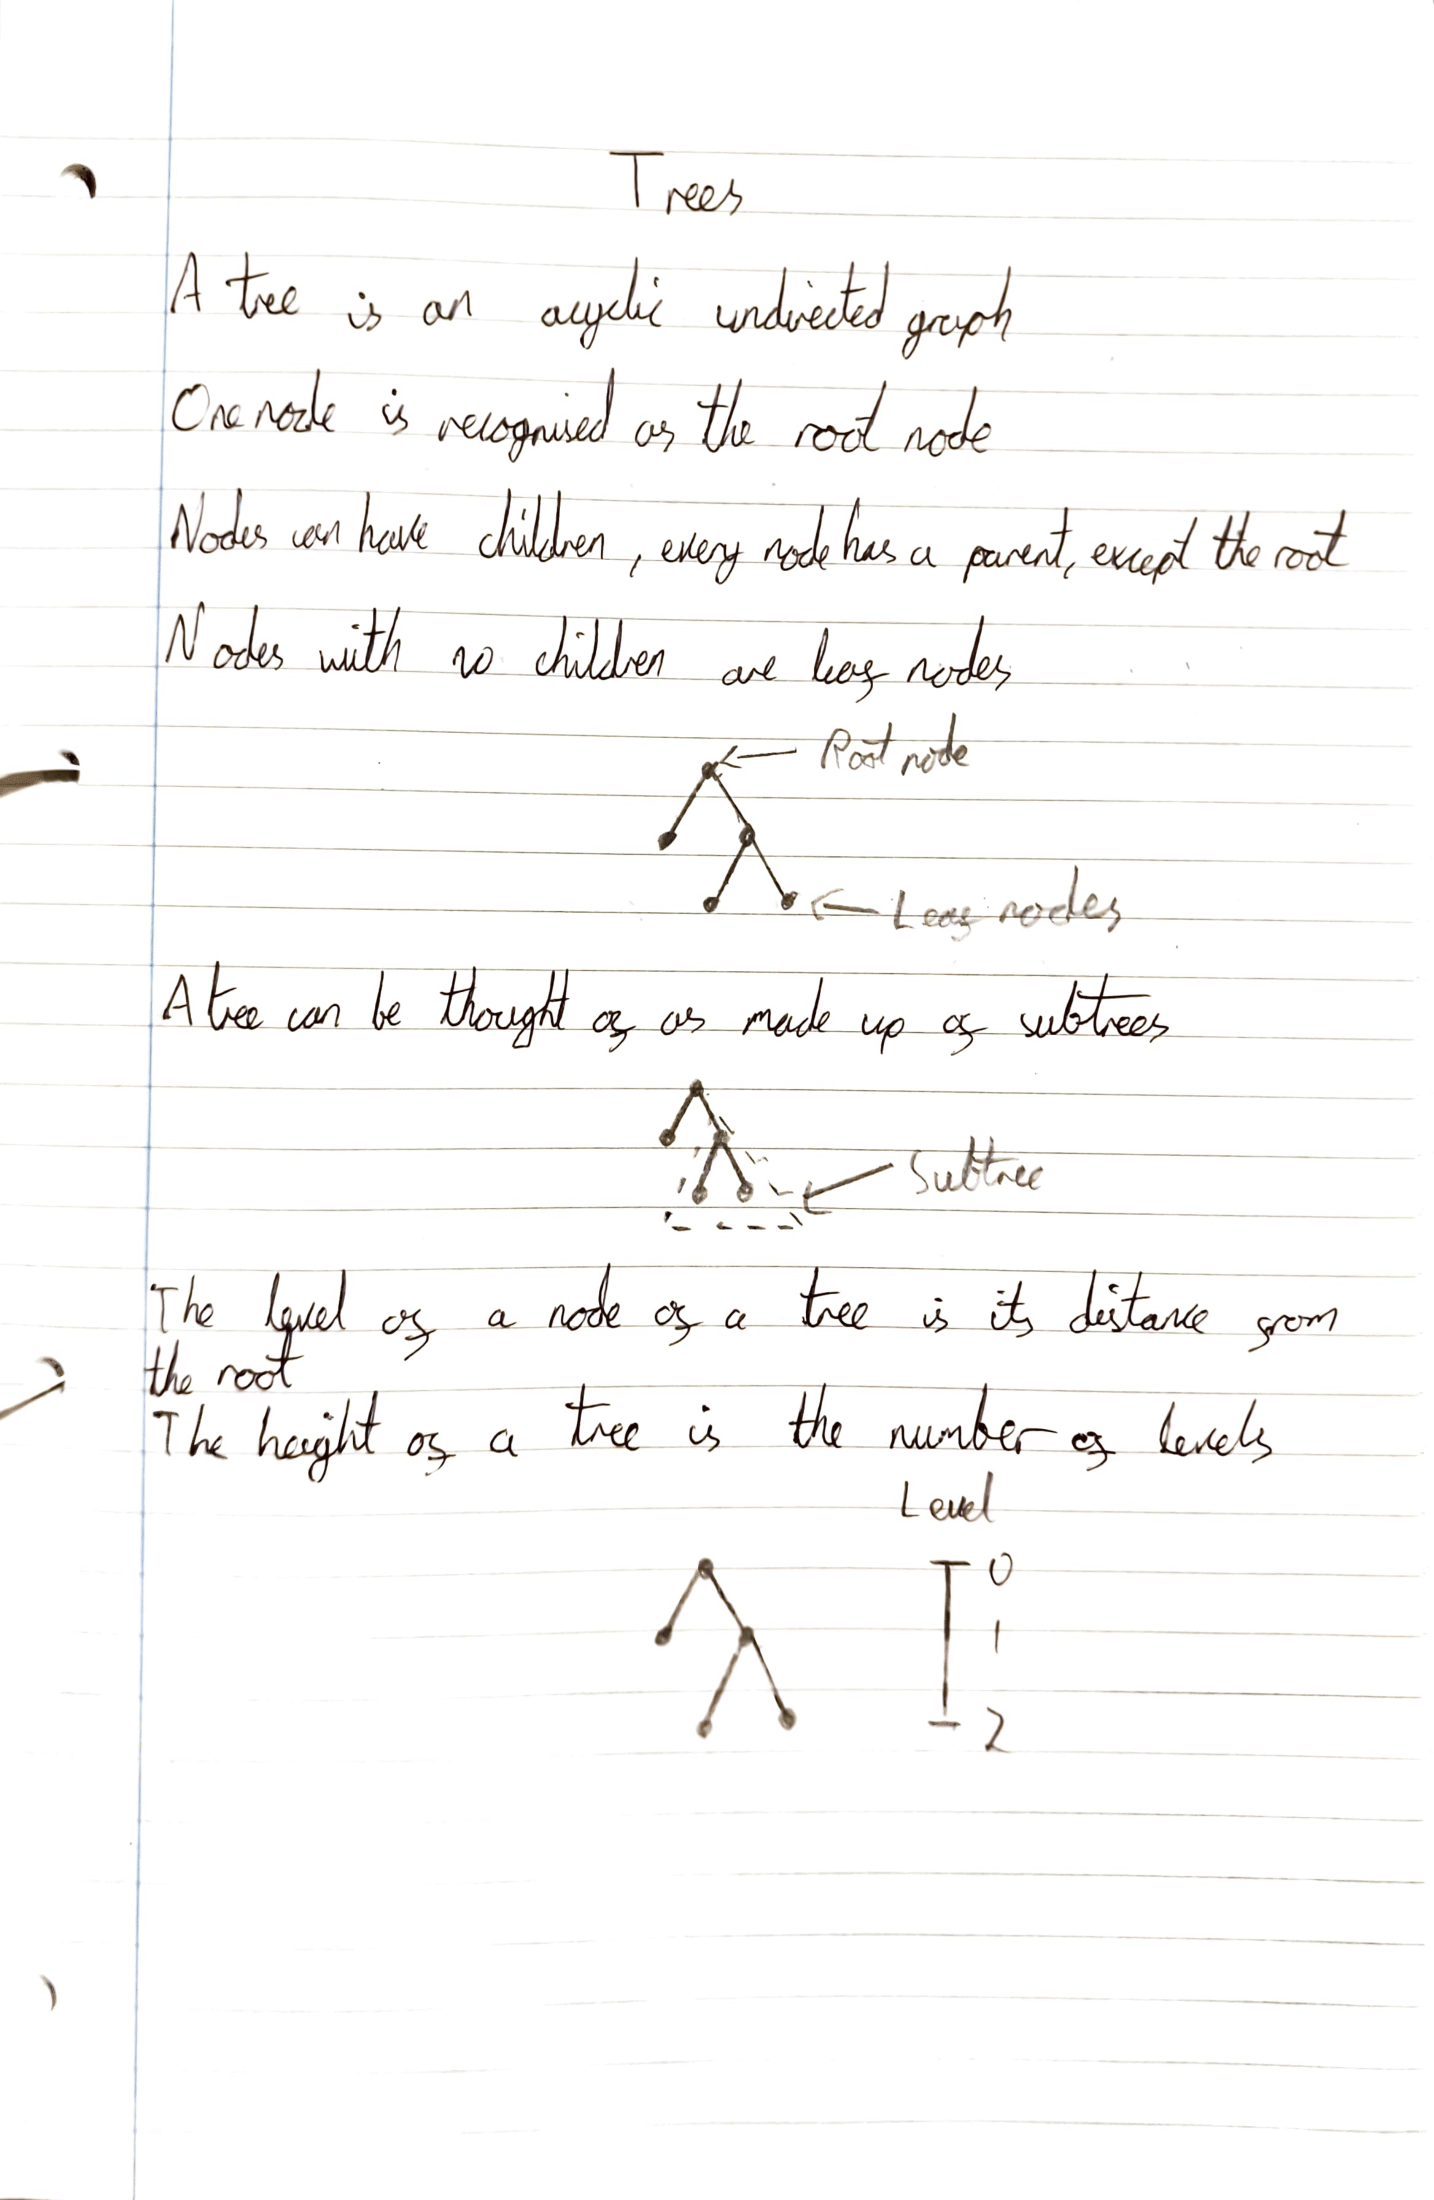 Trees
A tree is an acyclic undirected graph
One node is recognised as the root node
Nodes can have children, every node has a parent, except the root
Nodes with no children are leaf nodes
Root node
Leaf nodes
A tree can be thought of as made up of subtrees
Subtree
The level of a node of a tree is its distance from
the root
The height of a tree is the number of levels
Level
0
1
2